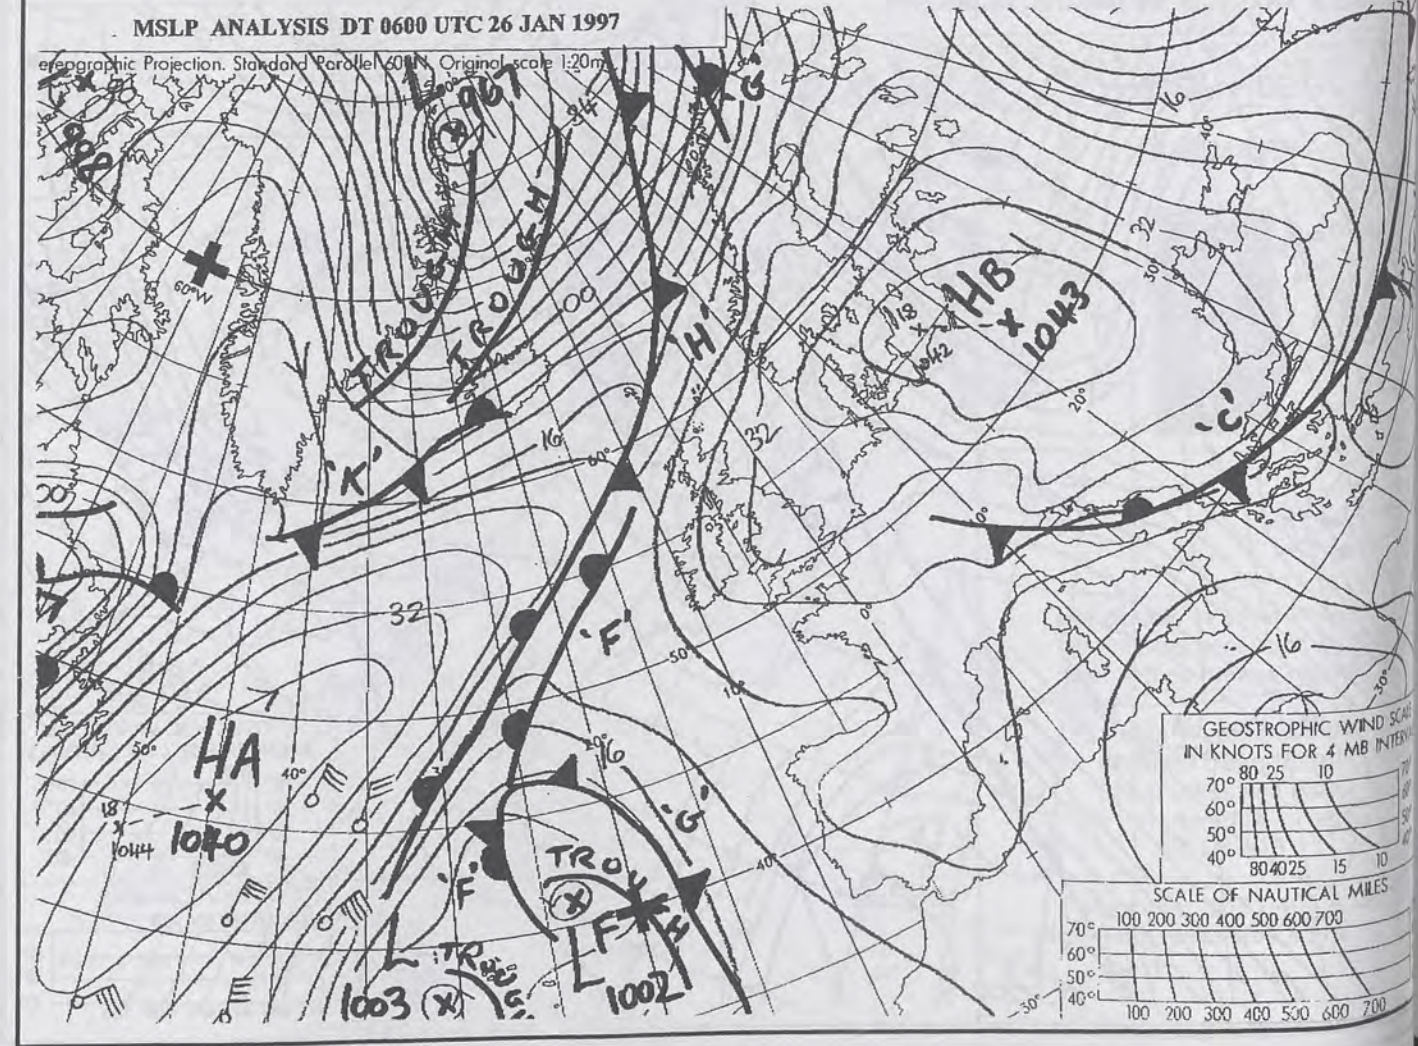 MSLP ANALYSIS DT 0600 UTC 26 JAN 1997
ereographic Projection. Standard Parallel 60°N. Original scale 1:20m
L 967
84
'G'
16
40°
TROUGH
TROUGH
60°W
00
'H'
32
30°
HB
1043
18
1042
20°
'C'
'K'
16
60°
32
00
0°
32
'F'
50°
10°
0°
16
30°
HA
1040
18
1044
50°
40°
20°
16
'G'
'F'
TROUGH
40°
L F
1002
L
TROUG
1003
30°
GEOSTROPHIC WIND SCA
IN KNOTS FOR 4 MB INTERVA
80 25 10
70°
60°
50°
40°
80 40 25 15 10
SCALE OF NAUTICAL MILES
100 200 300 400 500 600 700
70°
60°
50°
40°
100 200 300 400 500 600 700